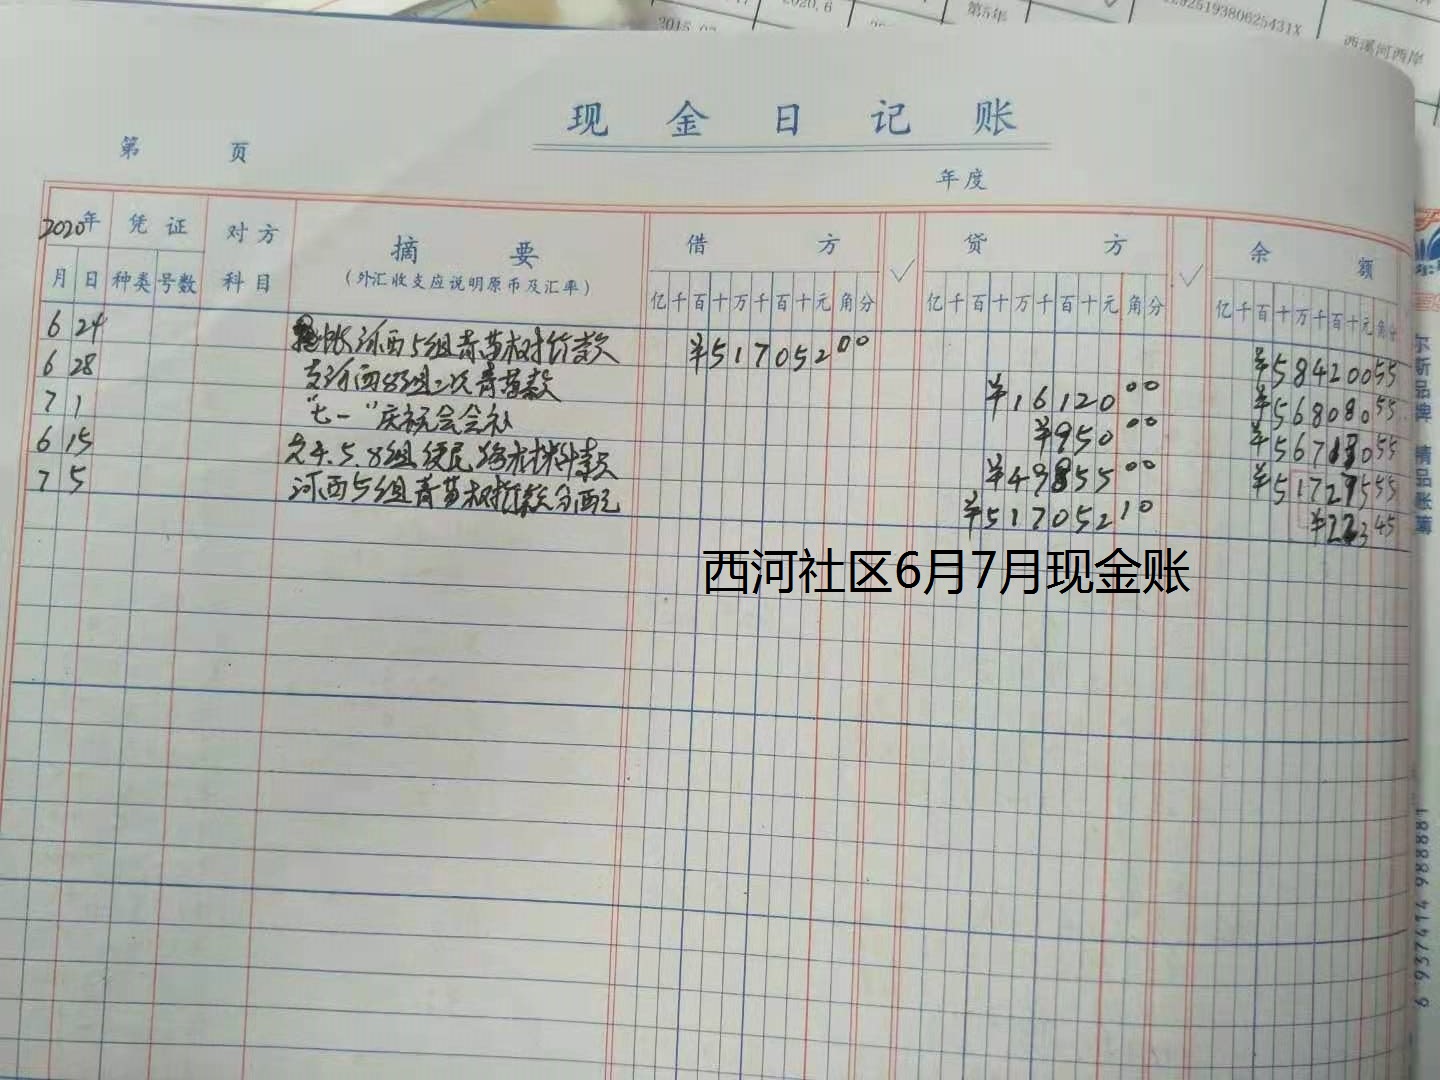 2020.6
第5年
2925193806254​31X
西溪河西岸
现金日记账
第 页
年度
2020年 凭证 对方 摘要 借方 贷方 余额
月 日 种类 号数 科目 (外汇收支应说明原币及汇率) 亿千百十万千百十元角分 亿千百十万千百十元角分 亿千百十万千百十元角分
6 24 河西5组青苗树折款 ¥517052 00 ¥584200 55
6 28 支河西8组二次青苗款 ¥16120 00 ¥568080 55
7 1 "七一"庆祝会会 ¥950 00 ¥567130 55
6 15 4.5.8组便民路材料款 ¥49855 00 ¥5172 55
7 5 河西5组青苗树折款分配 ¥517052 10 ¥223 45
西河社区6月7月现金账
尔新品牌 精品账簿
9 637414 988881